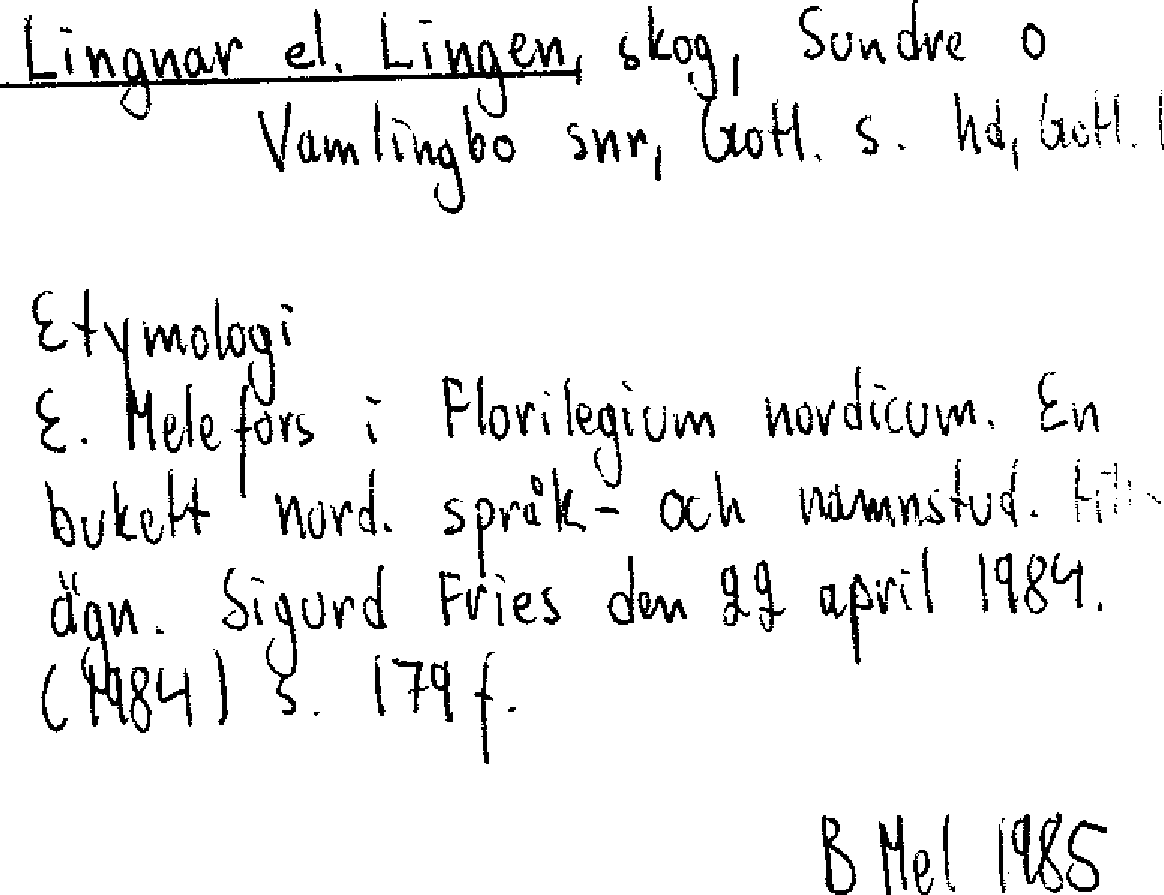 Lingnar el. Lingen, skog, Sundre o
Vamlingbo snr, Gotl. s. hd, Gotl. l
Etymologi
E. Melefors i Florilegium nordicum. En
bukett nord. språk- och namnstud. till-
ägn. Sigurd Fries den 22 april 1984.
(1984) s. 179 f.
B Mel 1985